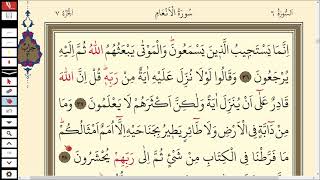 السورة ٦ سورة الأنعام الجزء ٧
إِنَّمَا يَسْتَجِيبُ الَّذِينَ يَسْمَعُونَ وَالْمَوْتَى يَبْعَثُهُمُ اللَّهُ ثُمَّ إِلَيْهِ
يُرْجَعُونَ ﴿٣٦﴾ وَقَالُوا لَوْلَا نُزِّلَ عَلَيْهِ آيَةٌ مِنْ رَبِّهِ قُلْ إِنَّ اللَّهَ
قَادِرٌ عَلَى أَنْ يُنَزِّلَ آيَةً وَلَكِنَّ أَكْثَرَهُمْ لَا يَعْلَمُونَ ﴿٣٧﴾ وَمَا
مِنْ دَابَّةٍ فِي الْأَرْضِ وَلَا طَائِرٍ يَطِيرُ بِجَنَاحَيْهِ إِلَّا أُمَمٌ أَمْثَالُكُمْ
مَا فَرَّطْنَا فِي الْكِتَابِ مِنْ شَيْءٍ ثُمَّ إِلَى رَبِّهِمْ يُحْشَرُونَ ﴿٣٨﴾